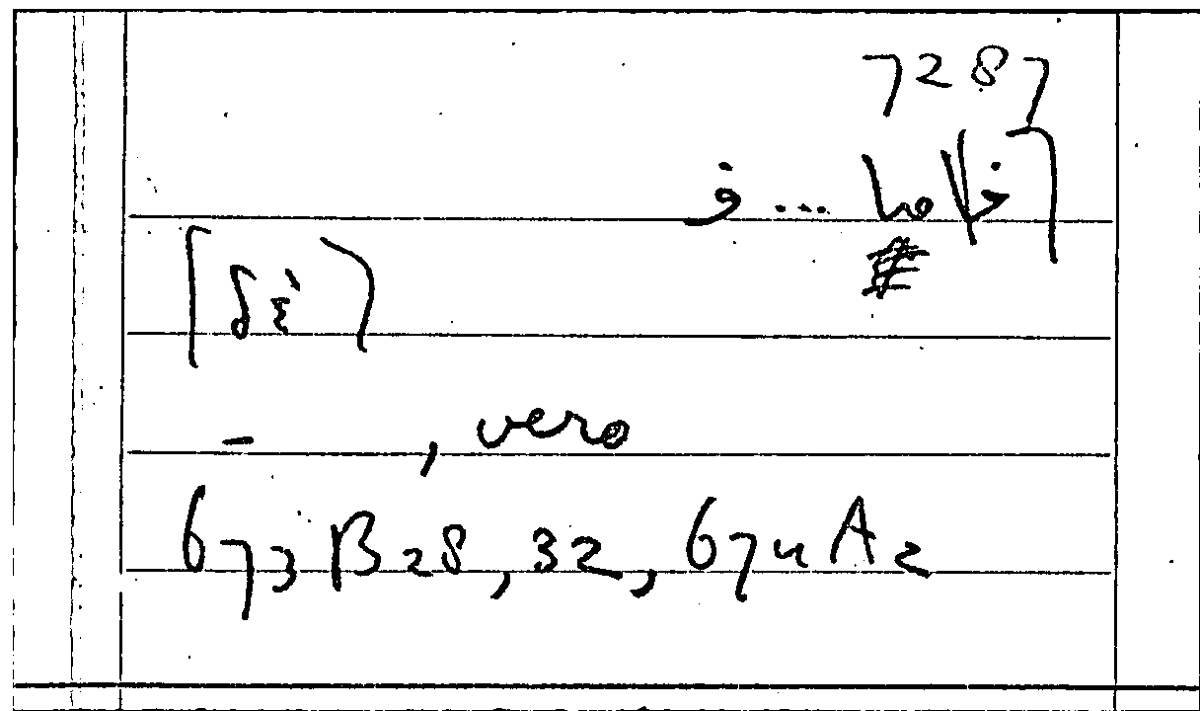 7287
[فاما ... ف
[δὲ]
– , vero
673 B 28, 32, 674 A 2